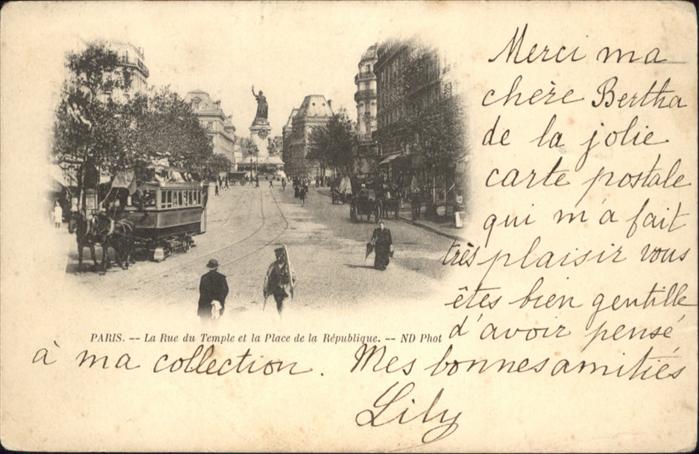 Merci ma
chère Bertha
de la jolie
carte postale
qui m'a fait
très plaisir vous
êtes bien gentille
d'avoir pensé
PARIS. -- La Rue du Temple et la Place de la République. -- ND Phot
à ma collection. Mes bonnes amitiés
Lily